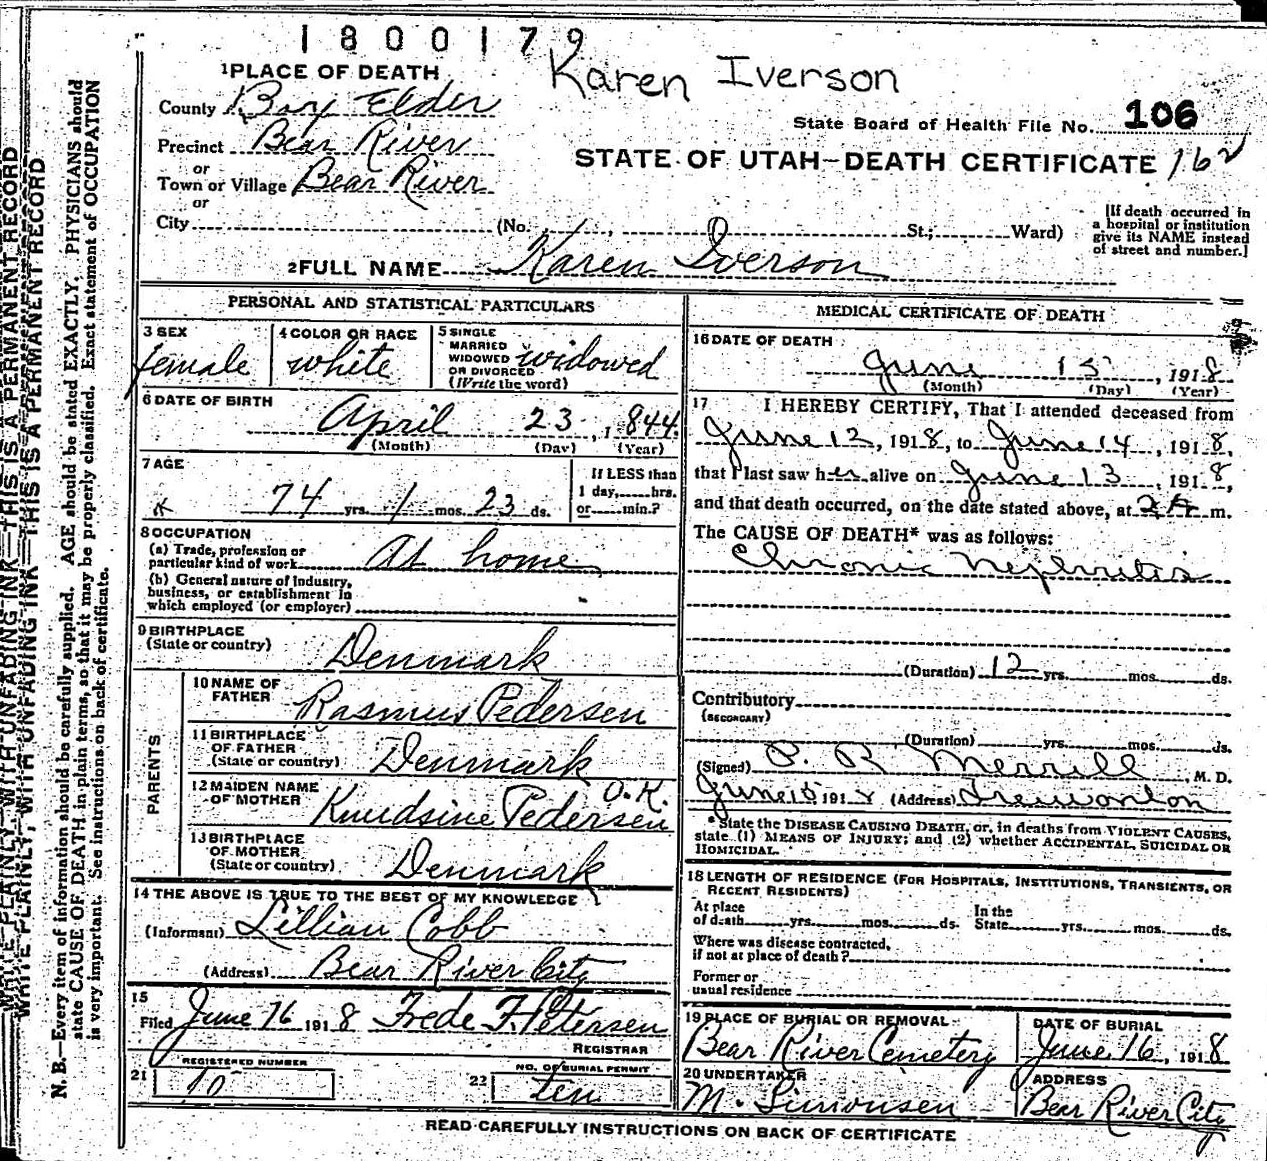 1800179
Karen Iverson
1 PLACE OF DEATH
County Box Elder
State Board of Health File No. 106
Precinct Bear River
STATE OF UTAH—DEATH CERTIFICATE 162
or
Town or Village Bear River
or
City (No. , St.; Ward)
[If death occurred in
a hospital or institution
give its NAME instead
of street and number.]
2 FULL NAME Karen Iverson
PERSONAL AND STATISTICAL PARTICULARS
3 SEX
female
4 COLOR OR RACE
white
5 SINGLE
MARRIED
WIDOWED
OR DIVORCED
(Write the word)
widowed
6 DATE OF BIRTH
April 23, 1844
(Month) (Day) (Year)
7 AGE
74 yrs. 1 mos. 23 ds.
If LESS than
1 day, hrs.
or min.?
8 OCCUPATION
(a) Trade, profession or
particular kind of work At home
(b) General nature of industry,
business, or establishment in
which employed (or employer)
9 BIRTHPLACE
(State or country) Denmark
PARENTS
10 NAME OF
FATHER Rasmus Pedersen
11 BIRTHPLACE
OF FATHER
(State or country) Denmark
12 MAIDEN NAME
OF MOTHER Knudsine Pedersen O.K.
13 BIRTHPLACE
OF MOTHER
(State or country) Denmark
14 THE ABOVE IS TRUE TO THE BEST OF MY KNOWLEDGE
(Informant) Lillian Cobb
(Address) Bear River City
15
Filed June 16 1918 Frede F. Petersen
REGISTRAR
REGISTERED NUMBER
21 10
NO. OF BURIAL PERMIT
22 ten
MEDICAL CERTIFICATE OF DEATH
16 DATE OF DEATH
June 15, 1918
(Month) (Day) (Year)
17 I HEREBY CERTIFY, That I attended deceased from
June 12, 1918, to June 14, 1918,
that I last saw her alive on June 13, 1918,
and that death occurred, on the date stated above, at 2 A m.
The CAUSE OF DEATH* was as follows:
Chronic Nephritis
(Duration) 12 yrs. mos. ds.
Contributory
(SECONDARY)
(Duration) yrs. mos. ds.
(Signed) P. R. Merrill, M. D.
June 15 1918 (Address) Tremonton
*State the DISEASE CAUSING DEATH, or, in deaths from VIOLENT CAUSES,
state (1) MEANS OF INJURY; and (2) whether ACCIDENTAL, SUICIDAL OR
HOMICIDAL.
18 LENGTH OF RESIDENCE (FOR HOSPITALS, INSTITUTIONS, TRANSIENTS, OR
RECENT RESIDENTS)
At place
of death yrs. mos. ds.
In the
State yrs. mos. ds.
Where was disease contracted,
if not at place of death?
Former or
usual residence
19 PLACE OF BURIAL OR REMOVAL
Bear River Cemetery
DATE OF BURIAL
June 16, 1918
20 UNDERTAKER
M. Simonsen
ADDRESS
Bear River City
READ CAREFULLY INSTRUCTIONS ON BACK OF CERTIFICATE
WRITE PLAINLY, WITH UNFADING INK—THIS IS A PERMANENT RECORD
WRITE PLAINLY, WITH UNFADING INK—THIS IS A PERMANENT RECORD
N. B.—Every item of information should be carefully supplied. AGE should be stated EXACTLY. PHYSICIANS should
state CAUSE OF DEATH in plain terms, so that it may be properly classified. Exact statement of OCCUPATION
is very important. See instructions on back of certificate.